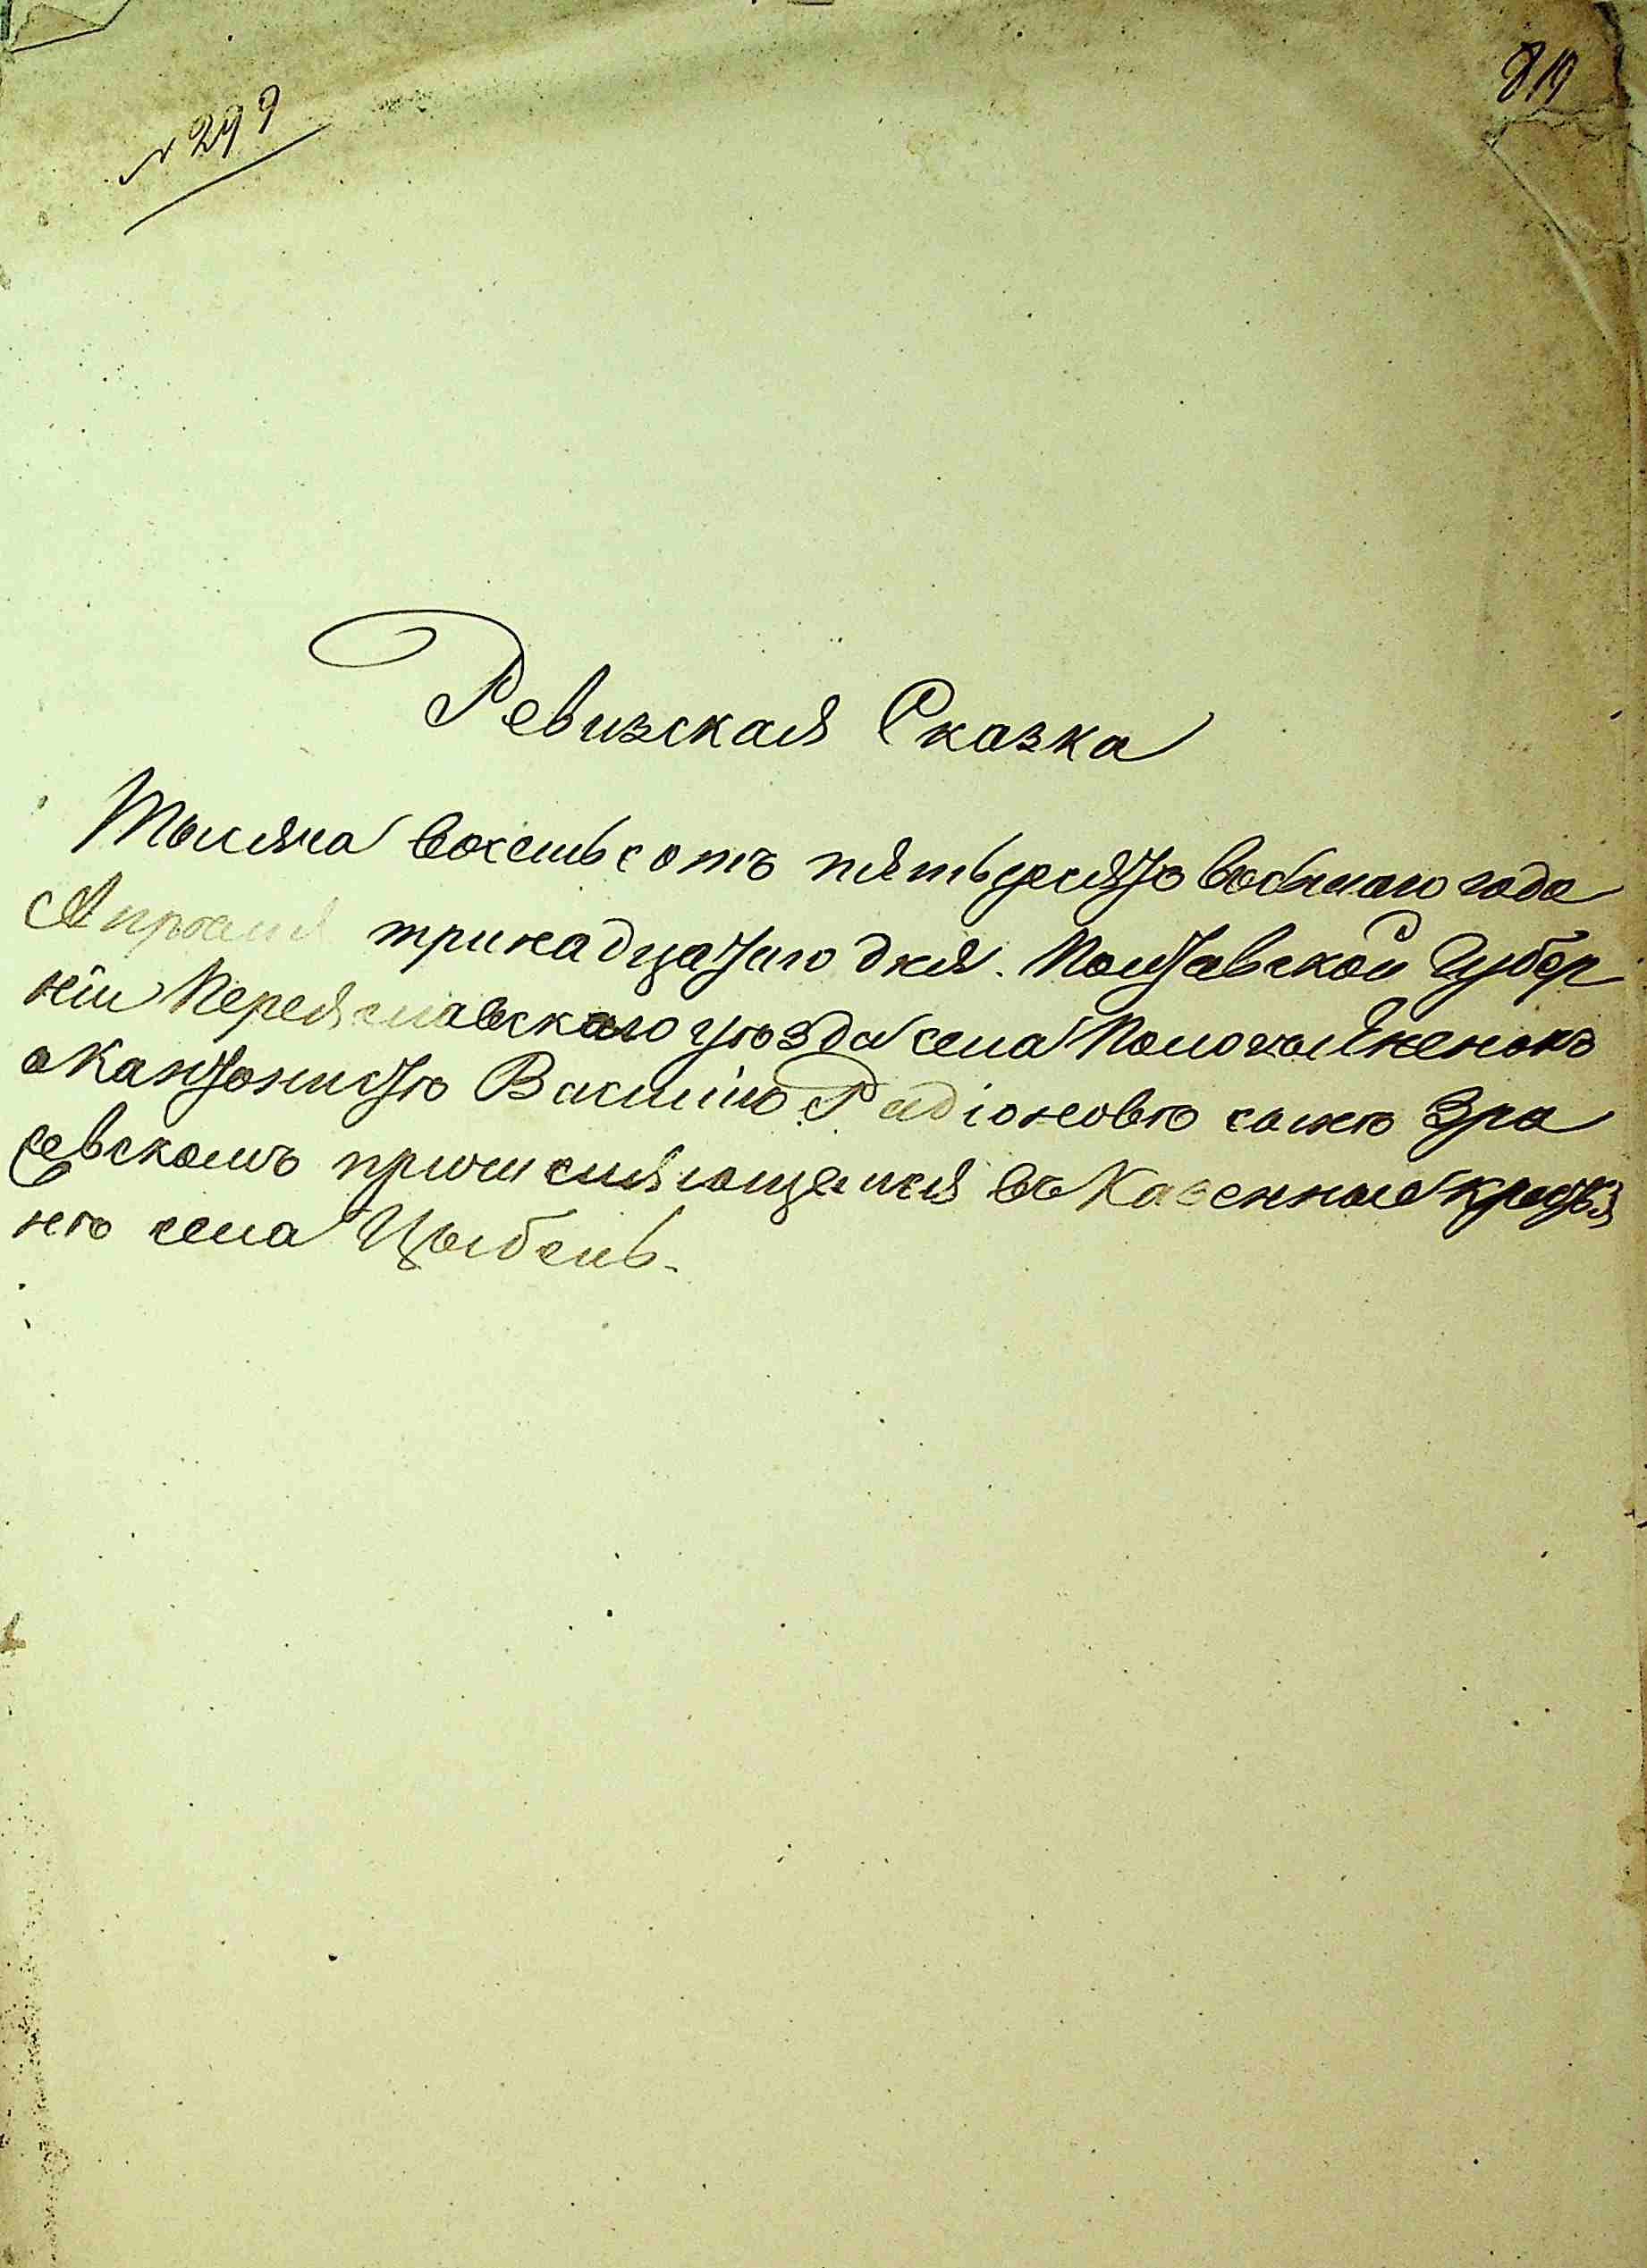 № 299
819
Ревизская Сказка
Тысяча восемьсотъ пятьдесятъ восьмаго года
Апрѣля тринадцатаго дня. Полтавской Губер
ніи Переяславскаго уѣзда села Пологоъ Яненокъ
о Кантонистѣ Василіѣ Радіоновѣ сынѣ
севскомъ причисляющемся въ Казенные крестья
не села Цыбель.